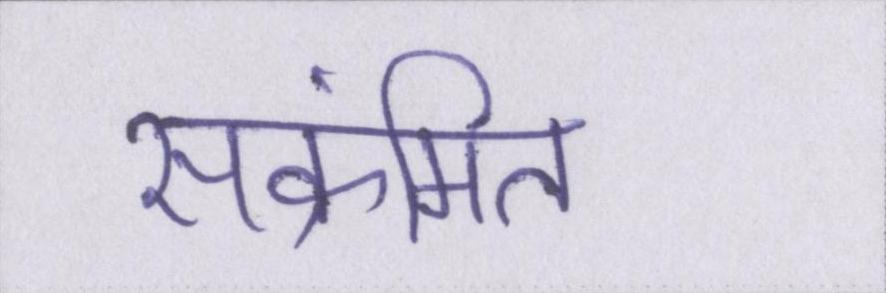 सक्रंमित